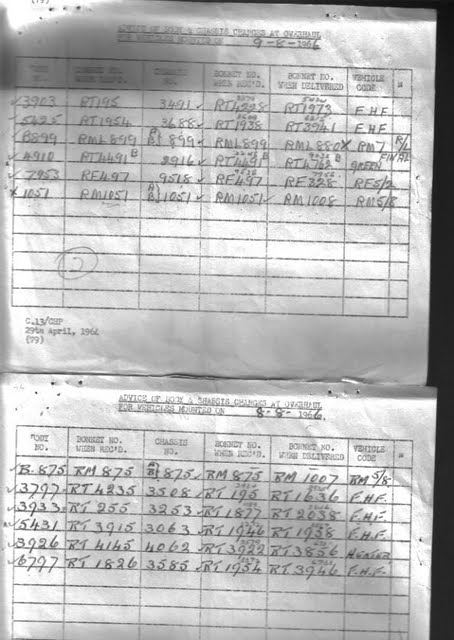 (79)
ADVICE OF BODY & CHASSIS CHANGES AT OVERHAUL
FOR VEHICLES MOUNTED ON 9-8-1966
BODY NO. BONNET NO. WHEN REC'D. CHASSIS NO. BONNET NO. WHEN REC'D. BONNET NO. WHEN DELIVERED VEHICLE CODE
3903 RT195 3491 RT4228 RT1973 F.H.F.
5425 RT1954 3688 RT1938 RT3941 F.H.F.
B899 RML899 899 RML899 RML880 RM7 R/L
4910 RT4491 2916 RT4491 GREEN FINAL
7953 RF497 9518 RF497 RF328 RF5/2
1051 RM1051 B 1051 RM1051 RM1008 RM5/8
C.13/CHP
29th April, 1964
(79)
ADVICE OF BODY & CHASSIS CHANGES AT OVERHAUL
FOR VEHICLES MOUNTED ON 8-8-1966.
BODY NO. BONNET NO. WHEN REC'D. CHASSIS NO. BONNET NO. WHEN REC'D. BONNET NO. WHEN DELIVERED VEHICLE CODE
B.875 RM 875 875 RM 875 RM 1007 RM 5/8
3797 RT 4235 3508 RT 195 RT 1636 F.H.F.
3933 RT 255 3253 RT 1877 RT 2038 F.H.F.
5431 RT 3915 3063 RT 1946 RT 1958 F.H.F.
3926 RT 4145 4062 RT 3922 RT 3856 HEATER
6797 RT 1826 3585 RT 1954 RT 3946 F.H.F.